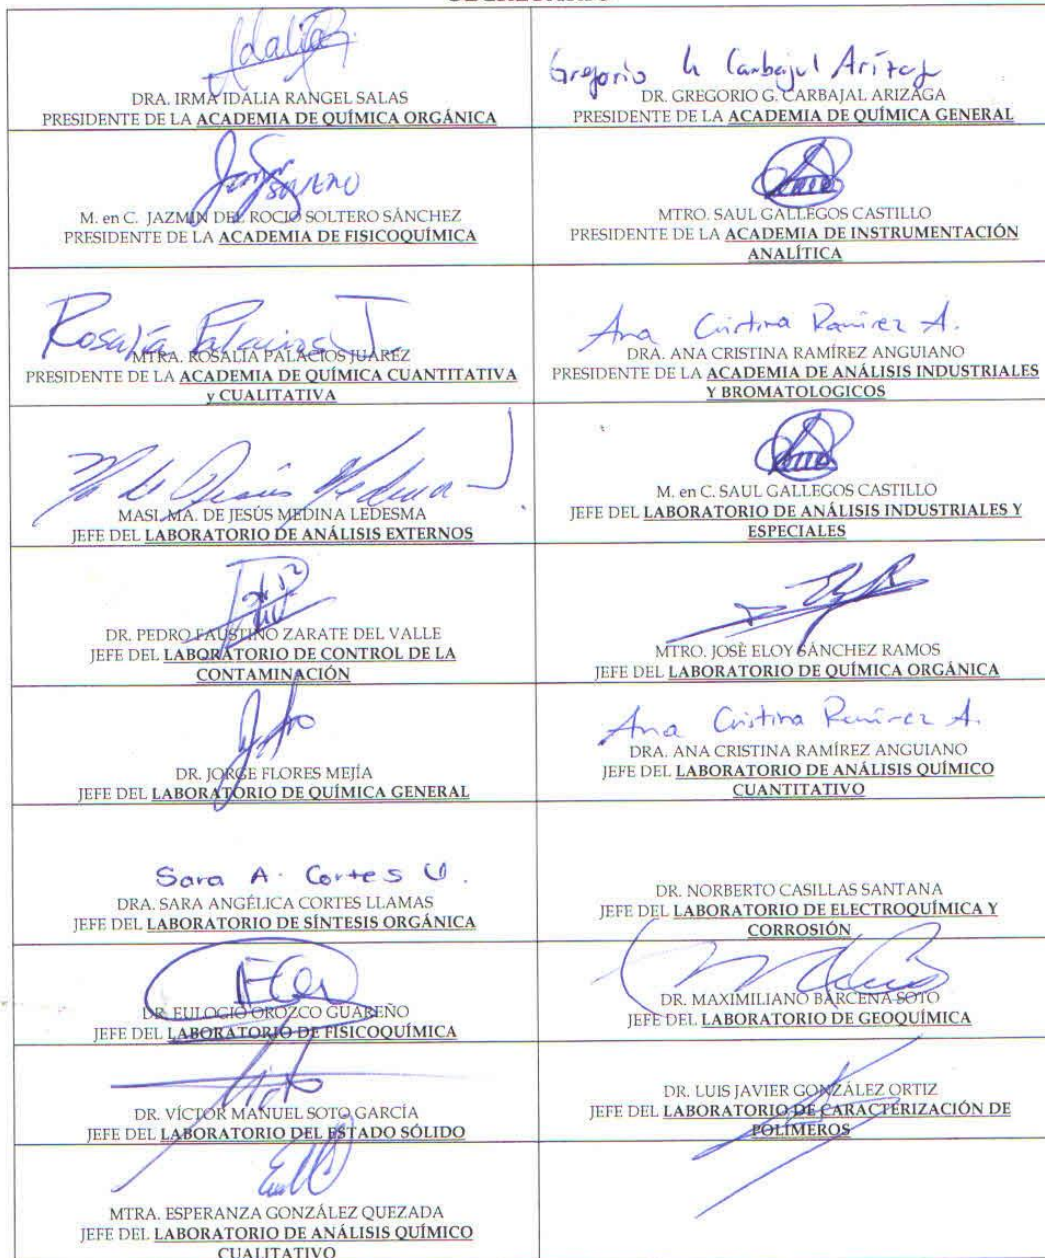 Idalia R.
DRA. IRMA IDALIA RANGEL SALAS
PRESIDENTE DE LA ACADEMIA DE QUÍMICA ORGÁNICA
Gregorio G Carbajal Arízaga
DR. GREGORIO G. CARBAJAL ARIZAGA
PRESIDENTE DE LA ACADEMIA DE QUÍMICA GENERAL
M. en C. JAZMIN DEL ROCIO SOLTERO SÁNCHEZ
PRESIDENTE DE LA ACADEMIA DE FISICOQUÍMICA
MTRO. SAUL GALLEGOS CASTILLO
PRESIDENTE DE LA ACADEMIA DE INSTRUMENTACIÓN
ANALÍTICA
Rosalía Palacios J.
MTRA. ROSALIA PALACIOS JUÁREZ
PRESIDENTE DE LA ACADEMIA DE QUÍMICA CUANTITATIVA
y CUALITATIVA
Ana Cristina Ramírez A.
DRA. ANA CRISTINA RAMÍREZ ANGUIANO
PRESIDENTE DE LA ACADEMIA DE ANÁLISIS INDUSTRIALES
Y BROMATOLOGICOS
Ma de Jesús Medina L
MASI. MA. DE JESÚS MEDINA LEDESMA
JEFE DEL LABORATORIO DE ANÁLISIS EXTERNOS
M. en C. SAUL GALLEGOS CASTILLO
JEFE DEL LABORATORIO DE ANÁLISIS INDUSTRIALES Y
ESPECIALES
DR. PEDRO FAUSTINO ZARATE DEL VALLE
JEFE DEL LABORATORIO DE CONTROL DE LA
CONTAMINACIÓN
MTRO. JOSÈ ELOY SÁNCHEZ RAMOS
JEFE DEL LABORATORIO DE QUÍMICA ORGÁNICA
DR. JORGE FLORES MEJÍA
JEFE DEL LABORATORIO DE QUÍMICA GENERAL
Ana Cristina Ramírez A.
DRA. ANA CRISTINA RAMÍREZ ANGUIANO
JEFE DEL LABORATORIO DE ANÁLISIS QUÍMICO
CUANTITATIVO
Sara A. Cortes Ll.
DRA. SARA ANGÉLICA CORTES LLAMAS
JEFE DEL LABORATORIO DE SÍNTESIS ORGÁNICA
DR. NORBERTO CASILLAS SANTANA
JEFE DEL LABORATORIO DE ELECTROQUÍMICA Y
CORROSIÓN
DR. EULOGIO OROZCO GUAREÑO
JEFE DEL LABORATORIO DE FISICOQUÍMICA
DR. MAXIMILIANO BÁRCENA SOTO
JEFE DEL LABORATORIO DE GEOQUÍMICA
DR. VÍCTOR MANUEL SOTO GARCÍA
JEFE DEL LABORATORIO DEL ESTADO SÓLIDO
DR. LUIS JAVIER GONZÁLEZ ORTIZ
JEFE DEL LABORATORIO DE CARACTERIZACIÓN DE
POLÍMEROS
MTRA. ESPERANZA GONZÁLEZ QUEZADA
JEFE DEL LABORATORIO DE ANÁLISIS QUÍMICO
CUALITATIVO